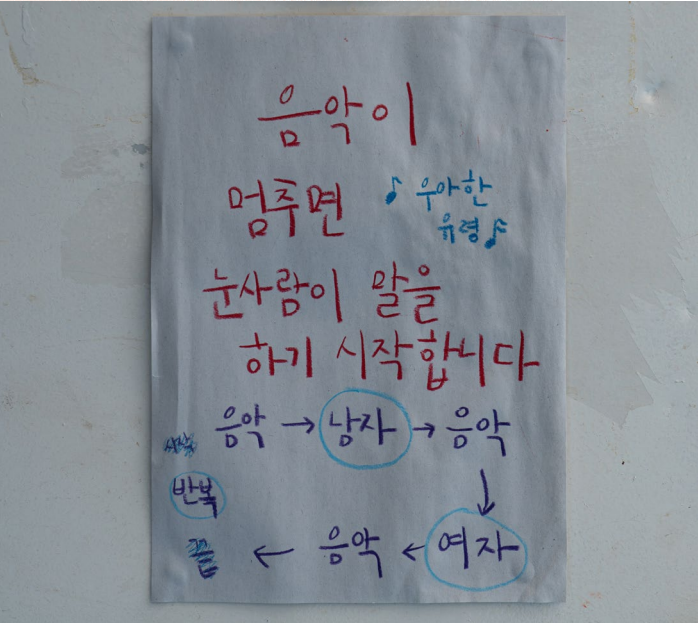 음악이
멈추면
♪ 우아한
유령 ♬
눈사람이 말을
하기 시작합니다
음악 → 남자 → 음악
↓
여자
← 음악 ←
반복